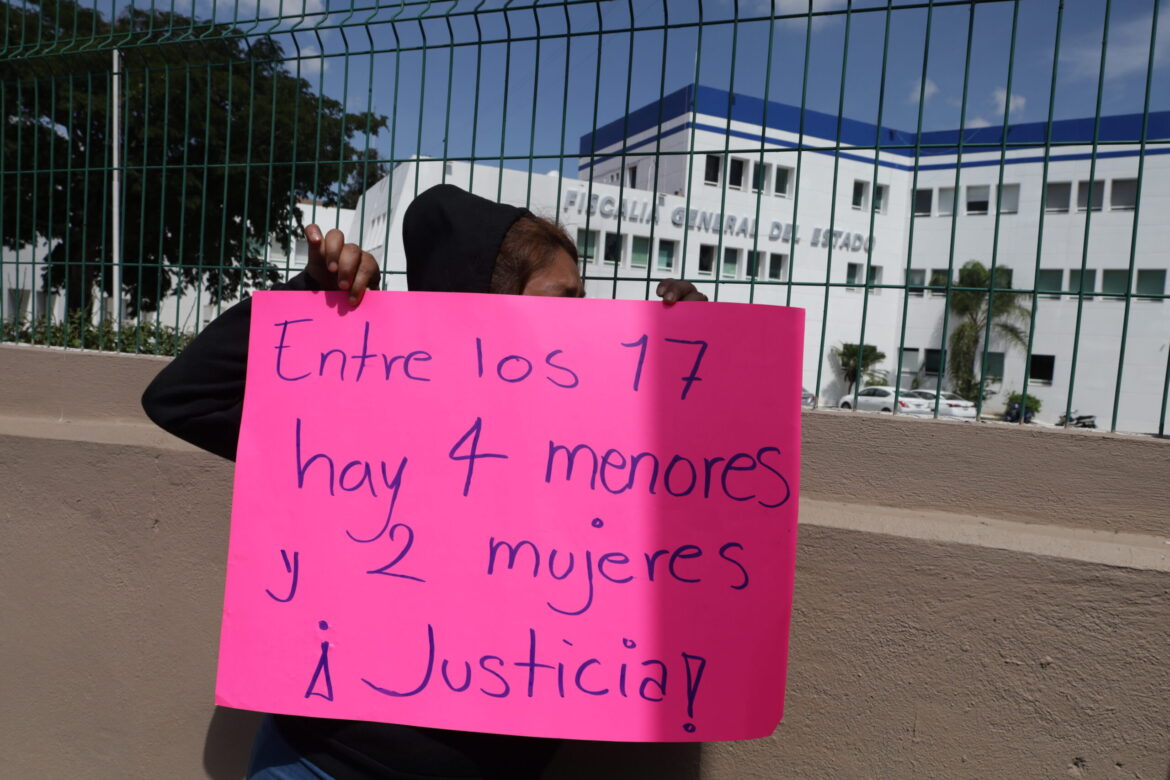 FISCALIA GENERAL DEL ESTADO
Entre los 17
hay 4 menores
y 2 mujeres
¡Justicia!